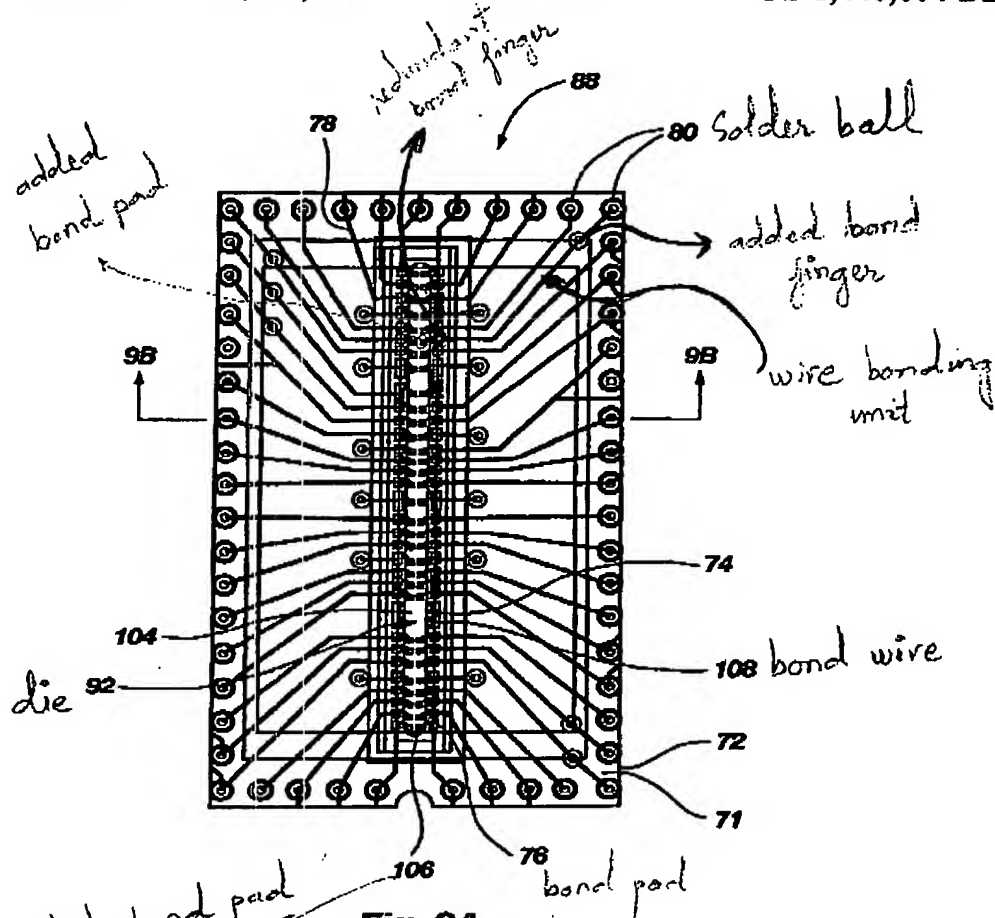 redundant
bond finger
88
78
80 Solder ball
added
bond pad
added bond
finger
9B
9B
wire bonding
unit
74
104
108 bond wire
die 92
72
71
106
76
bond pad
pad
Fig. 9A